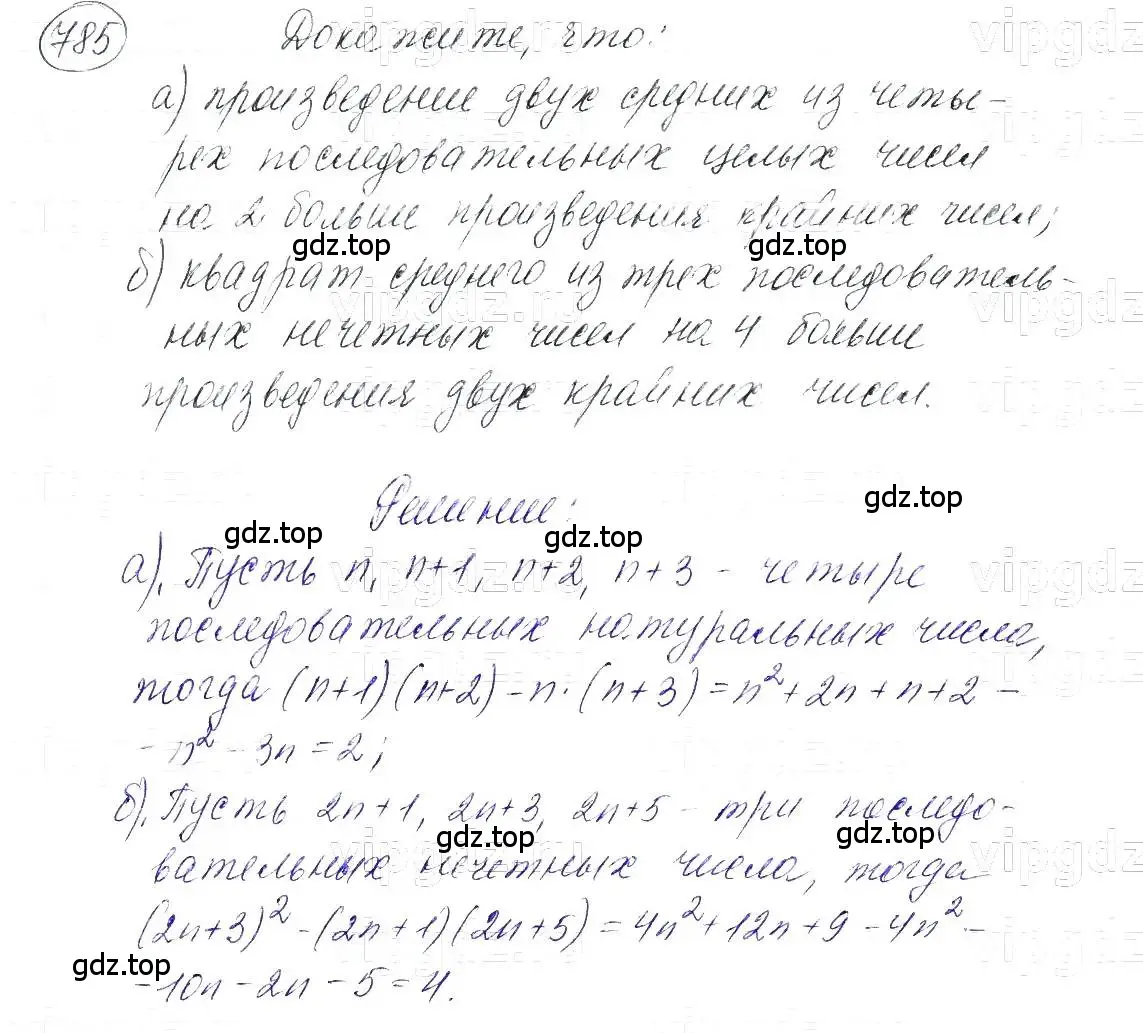 785 Докажите, что:
а) произведение двух средних из четы-
рех последовательных целых чисел
на 2 больше произведения крайних чисел;
gdz.top gdz.top
б) квадрат среднего из трех последователь-
ных нечетных чисел на 4 больше
произведения двух крайних чисел.
Решение:
gdz.top gdz.top gdz.top
а). Пусть n, n+1, n+2, n+3 - четыре
последовательных натуральных числа,
тогда (n+1)(n+2)-n·(n+3)=n²+2n+n+2-
-n²-3n=2;
б). Пусть 2n+1, 2n+3, 2n+5 - три последо-
gdz.top gdz.top
вательных нечетных числа, тогда
(2n+3)²-(2n+1)(2n+5)=4n²+12n+9-4n²-
gdz.top
-10n-2n-5=4.